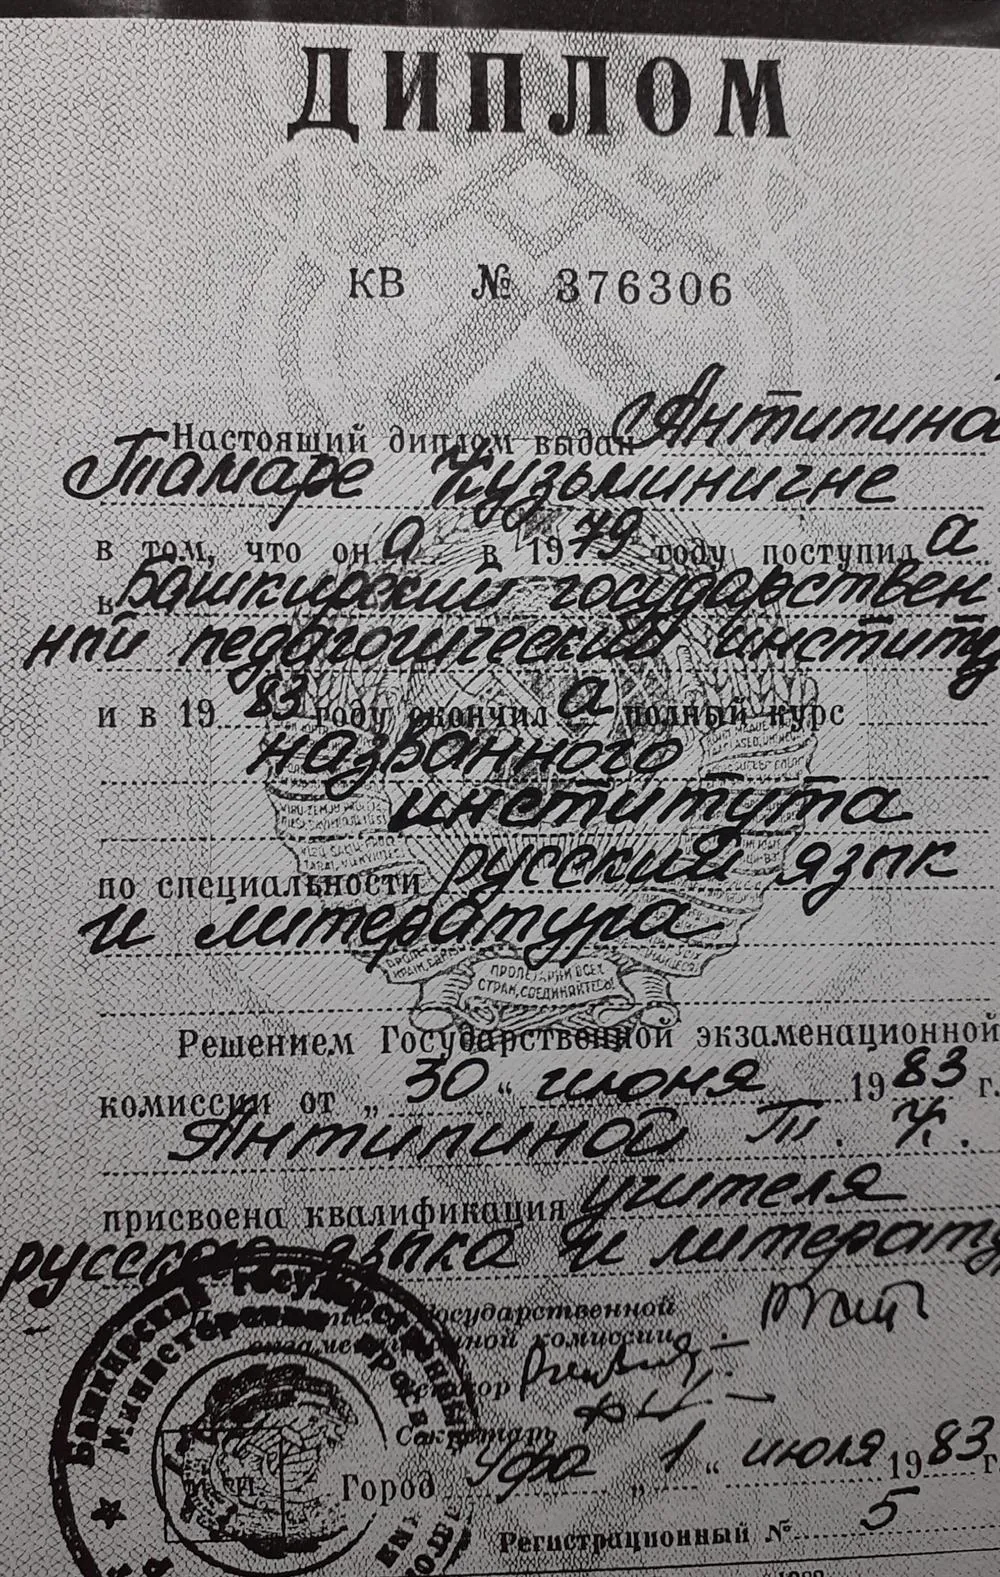 ДИПЛОМ
КВ № 376306
Настоящий диплом выдан Антипиной
Тамаре Кузьминичне
в том, что она в 1979 году поступила
в Башкирский государствен
ный педагогический институ
и в 1983 году окончила полный курс
названного
института
по специальности русский язык
и литература
ПРОЛЕТАРИИ ВСЕХ
СТРАН, СОЕДИНЯЙТЕСЬ!
Решением Государственной экзаменационной
комиссии от „30" июня 1983 г.
Антипиной Т. К.
присвоена квалификация учителя
русского языка и литерату
Государственной
экзаменационной комиссии
Ректор
Секретарь
Город Уфа „1" июля 1983 г
Регистрационный № 5
Башкирский государственный
Министерство просве
М. П.